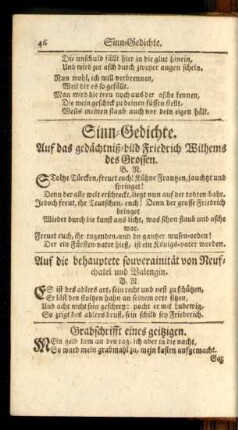 46 Sinn-Gedichte.
Die unschuld fällt hier in die glut hinein,
Und wird zur asch durch zweyer augen schein.
Nun wohl, ich will verbrennen,
Weil dir es so gefällt.
Man wird die treu noch aus der asche kennen,
Die mein geschick zu deinen füssen stellt,
Weils meinen staub auch vor dein eigen hält.
Sinn-Gedichte.
Auf das gedächtniß-bild Friedrich Wilhems
des Grossen.
B. N.
STolze Türcken, freuet euch! Kühne Frantzen, jauchzt und
springet!
Denn der alle welt erschreckt, liegt nun auf der todten bahr.
Jedoch freut, ihr Teutschen, euch! Denn der grosse Friedrich
bringet
Wieder durch die kunst ans licht, was schon staub und asche
war.
Freuet euch, ihr tugenden, und du gantzer musen-orden!
Der ein Fürsten-vater hieß, ist ein Königs-vater worden.
Auf die behauptete souverainität von Neuf-
chatel und Valengin.
B. N.
ES ist des adlers art, sein recht und nest zu schützen,
Er läst den stoltzen hahn an seinem orte sitzen,
Und acht nicht sein geschrey: pocht er mit Ludewig,
So zeigt des adlers brust, sein schild sey Friederich.
Grabschrifft eines geitzigen.
MEin geld kam an den tag, ich aber in die nacht,
So ward mein grabmahl zu, mein kasten aufgemacht.